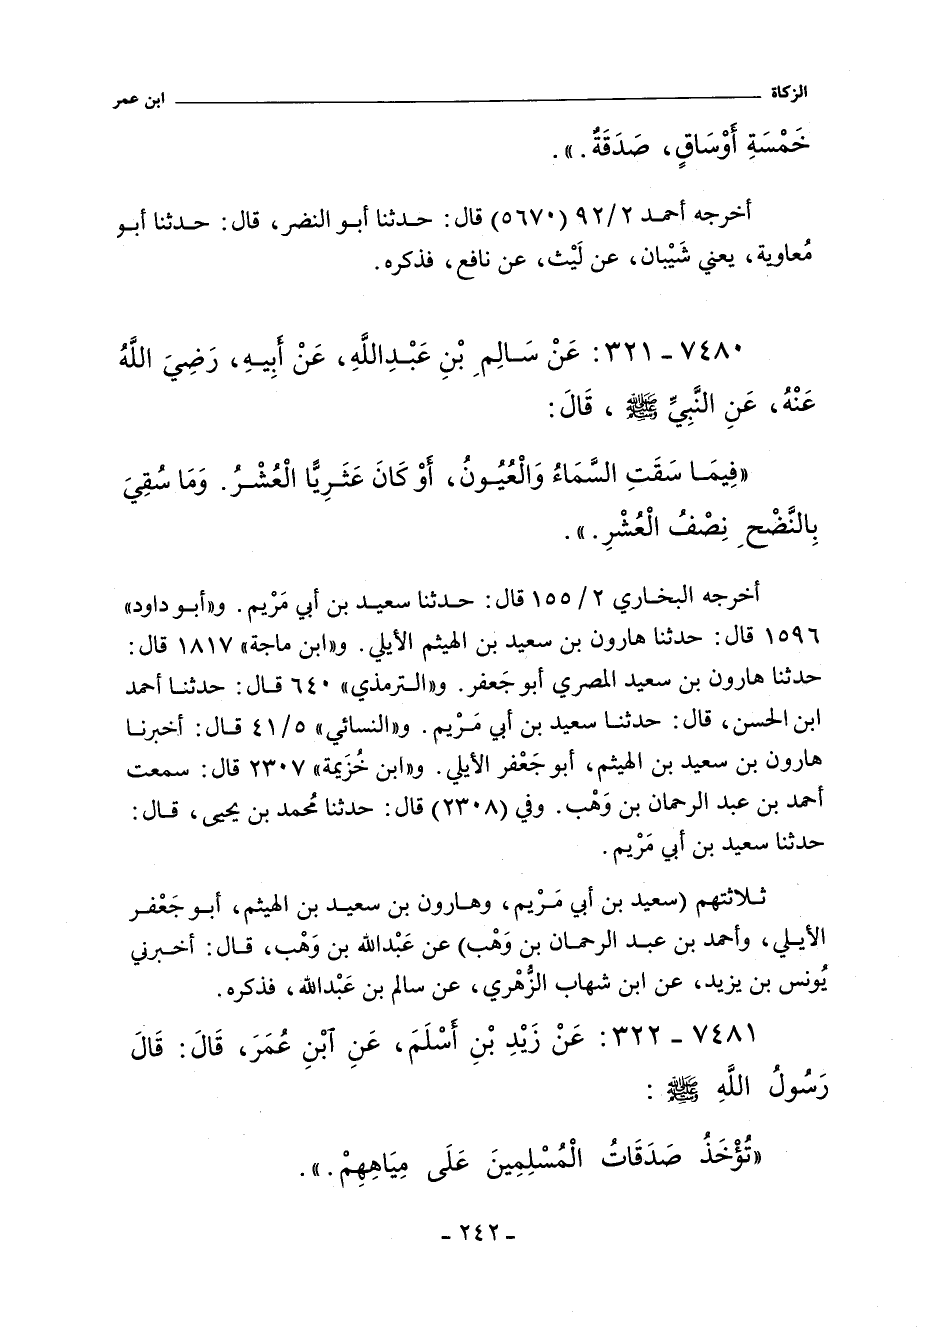 الزكاة ابن عمر
خَمْسَةِ أَوْسَاقٍ، صَدَقَةٌ.».
أخرجه أحمد ٩٢/٢ (٥٦٧٠) قال: حدثنا أبو النضر، قال: حدثنا أبو
مُعاوية، يعني شَيْبان، عن لَيْث، عن نافع، فذكره.
٧٤٨٠ ـ ٣٢١: عَنْ سَالِمِ بْنِ عَبْدِاللَّهِ، عَنْ أَبِيهِ، رَضِيَ اللَّهُ
عَنْهُ، عَنِ النَّبِيِّ ﷺ ، قَالَ:
«فِيمَا سَقَتِ السَّمَاءُ وَالْعُيُونُ، أَوْ كَانَ عَثَرِيًّا الْعُشْرُ. وَمَا سُقِيَ
بِالنَّضْحِ نِصْفُ الْعُشْرِ.».
أخرجه البخاري ٢/ ١٥٥ قال: حدثنا سعيد بن أبي مَرْيم. و«أبو داود»
١٥٩٦ قال: حدثنا هارون بن سعيد بن الهيثم الأيلي. و«ابن ماجة» ١٨١٧ قال:
حدثنا هارون بن سعيد المصري أبو جَعفر. و«الترمذي» ٦٤٠ قال: حدثنا أحمد
ابن الحسن، قال: حدثنا سعيد بن أبي مَرْيم. و«النسائي» ٤١/٥ قال: أخبرنا
هارون بن سعيد بن الهيثم، أبو جَعْفر الأيلي. و«ابن خُزيمة» ٢٣٠٧ قال: سمعت
أحمد بن عبد الرحمان بن وَهْب. وفي (٢٣٠٨) قال: حدثنا مُحمد بن يحيى، قال:
حدثنا سعيد بن أبي مَرْيم.
ثلاثتهم (سعيد بن أبي مَرْيم، وهارون بن سعيد بن الهيثم، أبو جَعْفر
الأيلي، وأحمد بن عبد الرحمان بن وَهْب) عن عَبْدالله بن وَهْب، قال: أخبرني
يُونس بن يزيد، عن ابن شهاب الزُّهْري، عن سالم بن عَبْدالله، فذكره.
٧٤٨١ ـ ٣٢٢: عَنْ زَيْدِ بْنِ أَسْلَمَ، عَنِ ٱبْنِ عُمَرَ، قَالَ: قَالَ
رَسُولُ اللَّهِ ﷺ :
«تُؤْخَذُ صَدَقَاتُ الْمُسْلِمِينَ عَلَى مِيَاهِهِمْ.».
ـ ٢٤٢ ـ